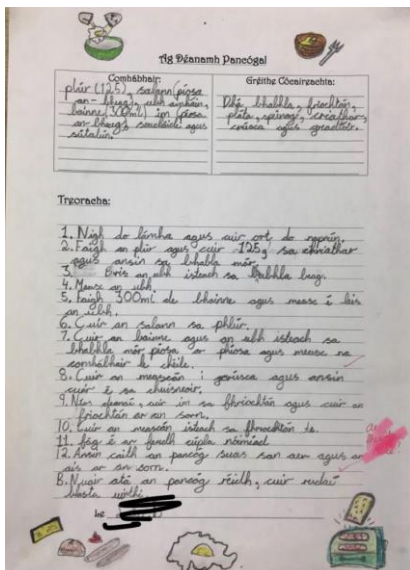 Ag Déanamh Pancógaí
Comhábhair:
plúr (125), salann (píosa
an-bheag), ubh amháin,
bainne (300ml) im (píosa
an-bheag), seacláid agus
sútalún.
Gréithe Cócaireachta:
Dhá bhabhla, friochtán,
pláta, spúnóg, criathar,
crúsca agus
Treoracha:
1. Nigh do lámha agus cuir ort do naprún.
2. Faigh an plúr agus cuir 125g sa chriathar
agus ansin sa bhabhla mór.
3. Bris an ubh isteach sa babhla beag.
4. Measc an ubh.
5. Faigh 300ml de bhainne agus measc é leis
an ubh.
6. Cuir an salann sa phlúr.
7. Cuir an bainne agus an ubh isteach sa
bhabhla mór píosa ar phíosa agus measc na
comhábhair le chéile.
8. Cuir an meascán i gcrúsca agus ansin
cuir é sa chuisneoir.
9. cuir im sa fhriochtán agus cuir an
friochtán ar an sorn.
10. Cuir an meascán isteach sa fhriochtán te.
11. fág é ar feadh cúpla nóiméad
12. Ansin caith an pancóg suas san aer agus ar
ais ar an sorn.
13. Nuair atá an pancóg réidh, cuir rudaí
blasta uirthi.
le: